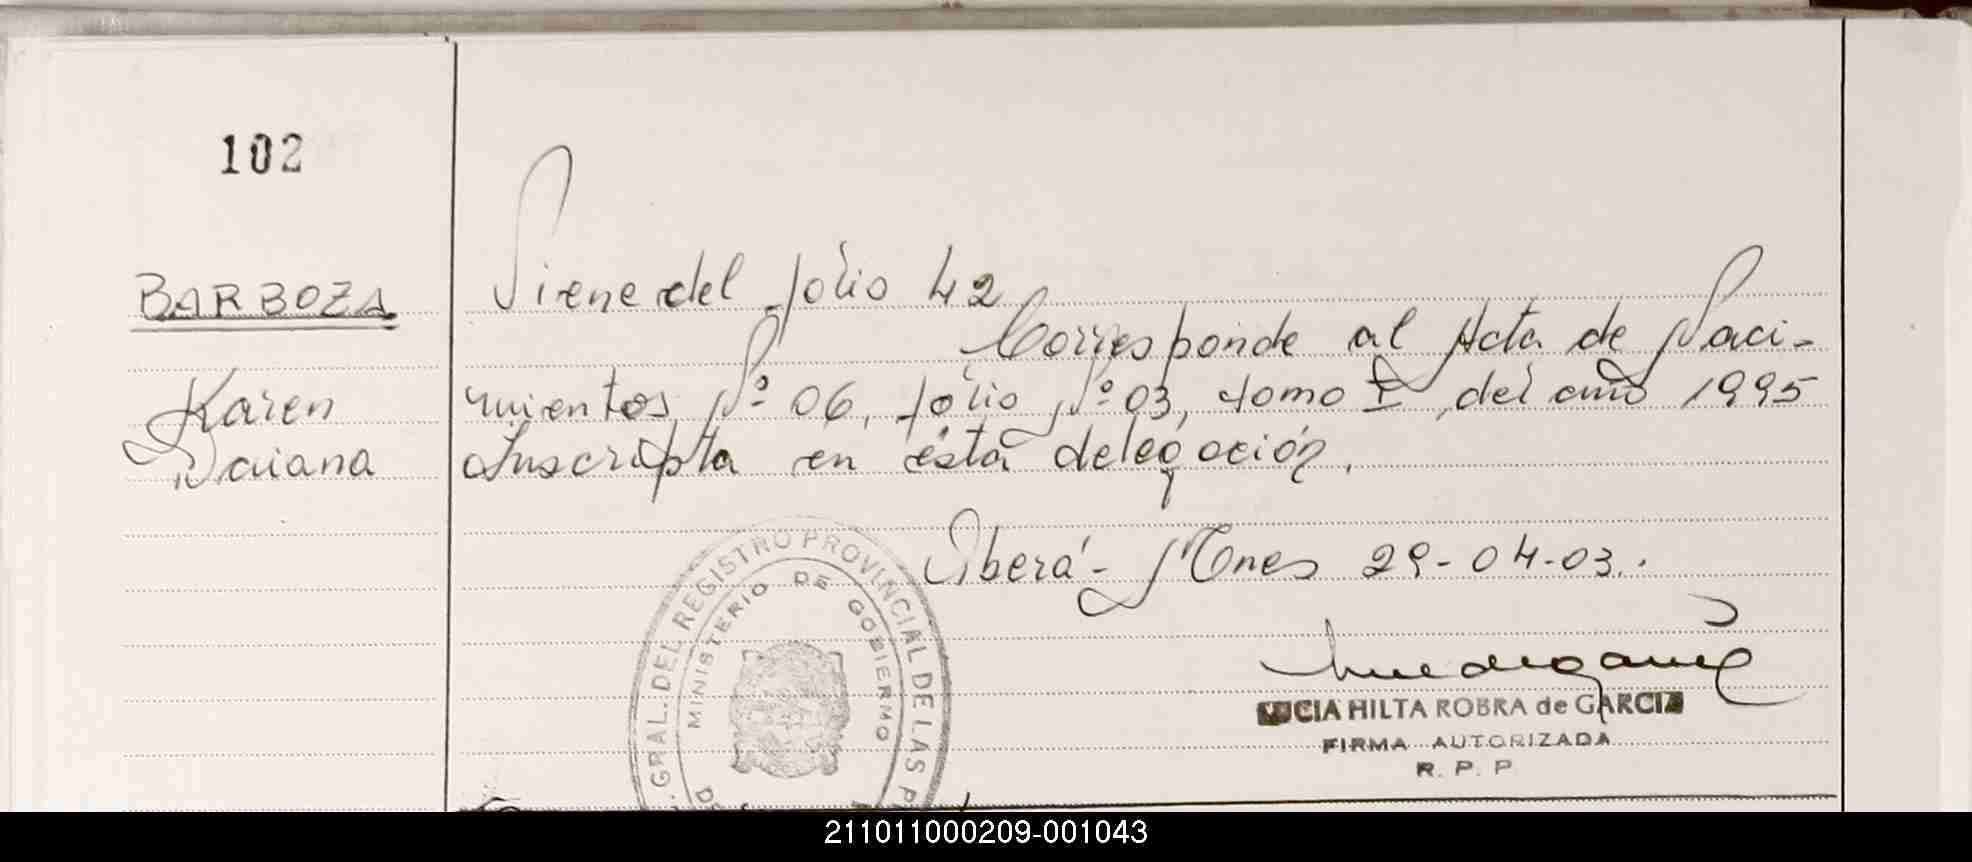 102
BARBOZA
Karen
Daiana
Viene del folio 42
Corresponde al Acta de Naci-
mientos Nº 06, folio Nº 03, tomo I, del año 1995
Inscripta en ésta delegación.
Oberá - Mnes 29-04-03.
GRAL. DEL REGISTRO PROVINCIAL DE LAS P
MINISTERIO DE GOBIERNO
LUCIA HILTA ROBRA de GARCIA
FIRMA AUTORIZADA
R. P. P
211011000209-001043